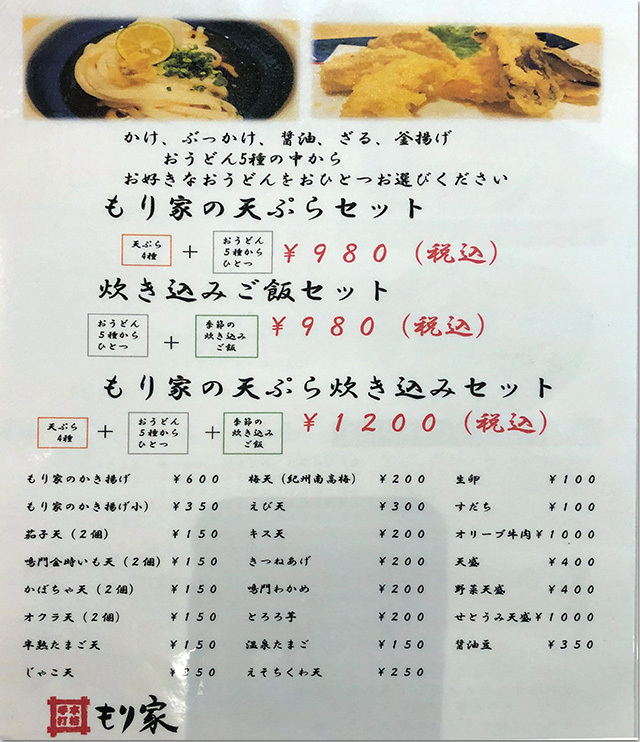 かけ、ぶっかけ、醤油、ざる、釜揚げ
おうどん5種の中から
お好きなおうどんをおひとつお選びください
もり家の天ぷらセット
天ぷら
4種
+
おうどん
5種から
ひとつ
¥980(税込)
炊き込みご飯セット
おうどん
5種から
ひとつ
+
季節の
炊き込み
ご飯
¥980(税込)
もり家の天ぷら炊き込みセット
天ぷら
4種
+
おうどん
5種から
ひとつ
+
季節の
炊き込み
ご飯
¥1200(税込)
もり家のかき揚げ ¥600
もり家のかき揚げ小) ¥350
茄子天(2個) ¥150
鳴門金時いも天(2個) ¥150
かぼちゃ天(2個) ¥150
オクラ天(2個) ¥150
半熟たまご天 ¥150
じゃこ天 ¥250
梅天(紀州南高梅) ¥200
えび天 ¥300
キス天 ¥200
きつねあげ ¥200
鳴門わかめ ¥200
とろろ芋 ¥200
温泉たまご ¥150
えそちくわ天 ¥250
生卵 ¥100
すだち ¥100
オリーブ牛肉 ¥1000
天盛 ¥400
野菜天盛 ¥400
せとうみ天盛 ¥1000
醤油豆 ¥350
本格
手打
もり家